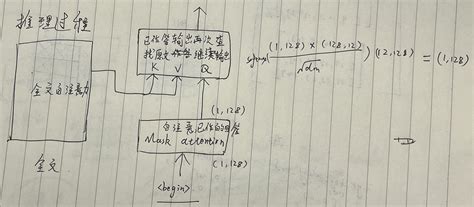 推理过程
全文自注意力
全文
已作答输出再次查
找原文 作答 继续输出
K V Q
(1,128)
自注意已作的回答
Mask attention
(1,128)
<begin>
softmax((1,128) × (128,12) / √dm) (12,128) = (1,128)